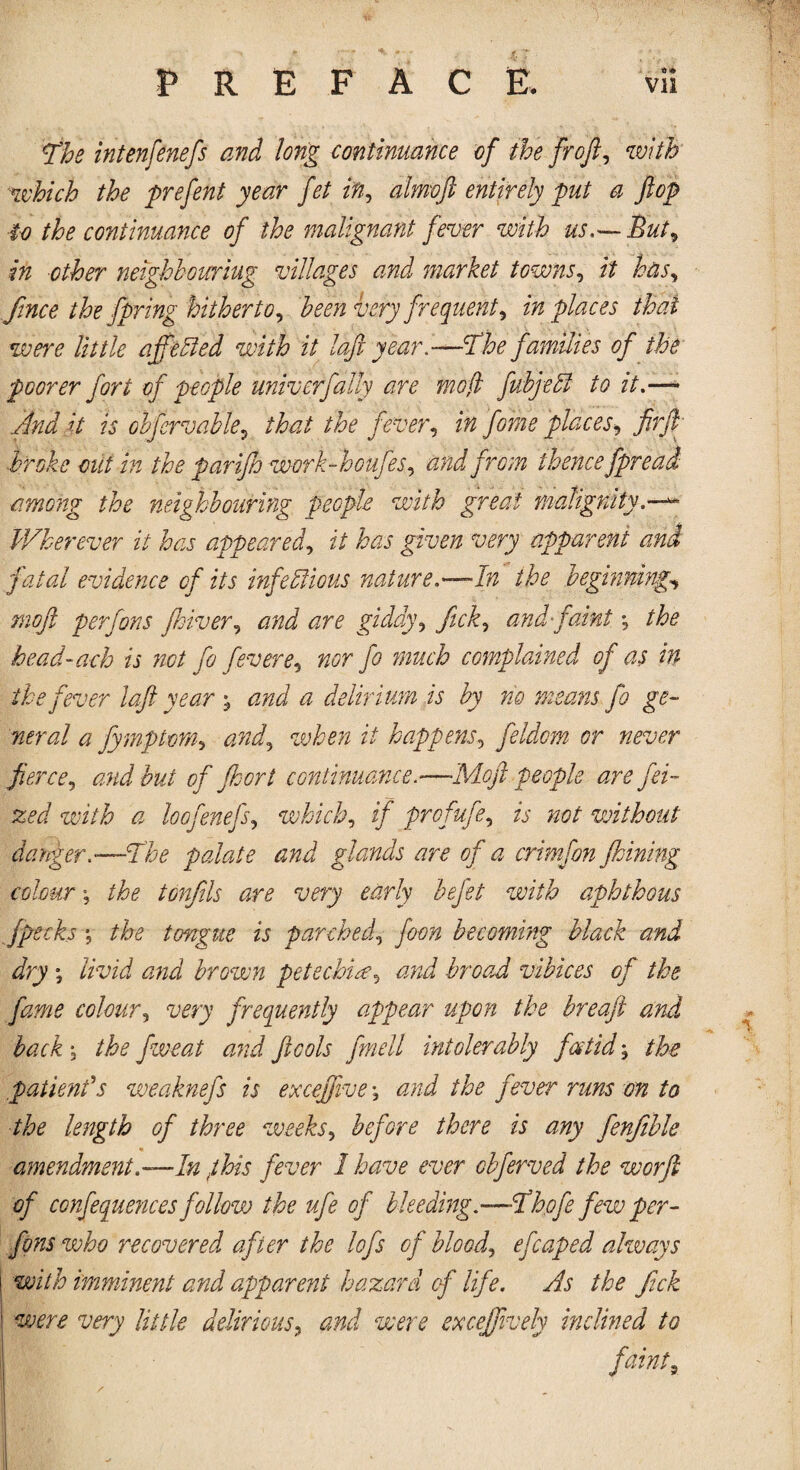 PREFACE. vii
The intenſeneſs and long continuance of the froſt, with
which the preſent year ſet in, almoſt entirely put a ſtop
to the continuance of the malignant fever with us.—But,
in other neighbouriug villages and market towns, it has,
ſince the ſpring hitherto, been very frequent, in places that
were little affected with it laſt year.—The families of the
poorer ſort of people univerſally are moſt ſubject to it.—
And it is obſervable, that the fever, in ſome places, firſt
broke out in the pariſh work-houſes, and from thence ſpread
among the neighbouring people with great malignity.—
Wherever it has appeared, it has given very apparent and
fatal evidence of its infectious nature.—In the beginning,
moſt perſons ſhiver, and are giddy, ſick, and faint; the
head-ach is not ſo ſevere, nor ſo much complained of as in
the fever laſt year; and a delirium is by no means ſo ge-
neral a ſymptom, and, when it happens, ſeldom or never
fierce, and but of ſhort continuance.—Moſt people are ſei-
zed with a looſeneſs, which, if profuſe, is not without
danger.—The palate and glands are of a crimſon ſhining
colour; the tonſils are very early beſet with aphthous
ſpecks; the tongue is parched, ſoon becoming black and
dry; livid and brown petechiæ, and broad vibices of the
ſame colour, very frequently appear upon the breaſt and
back; the ſweat and ſtools ſmell intolerably fœtid; the
patient's weakneſs is exceſſive; and the fever runs on to
the length of three weeks, before there is any ſenſible
amendment.—In this fever I have ever obſerved the worſt
of conſequences follow the uſe of bleeding.—Thoſe few per-
ſons who recovered after the loſs of blood, eſcaped always
with imminent and apparent hazard of life. As the ſick
were very little delirious, and were exceſſively inclined to
faint,